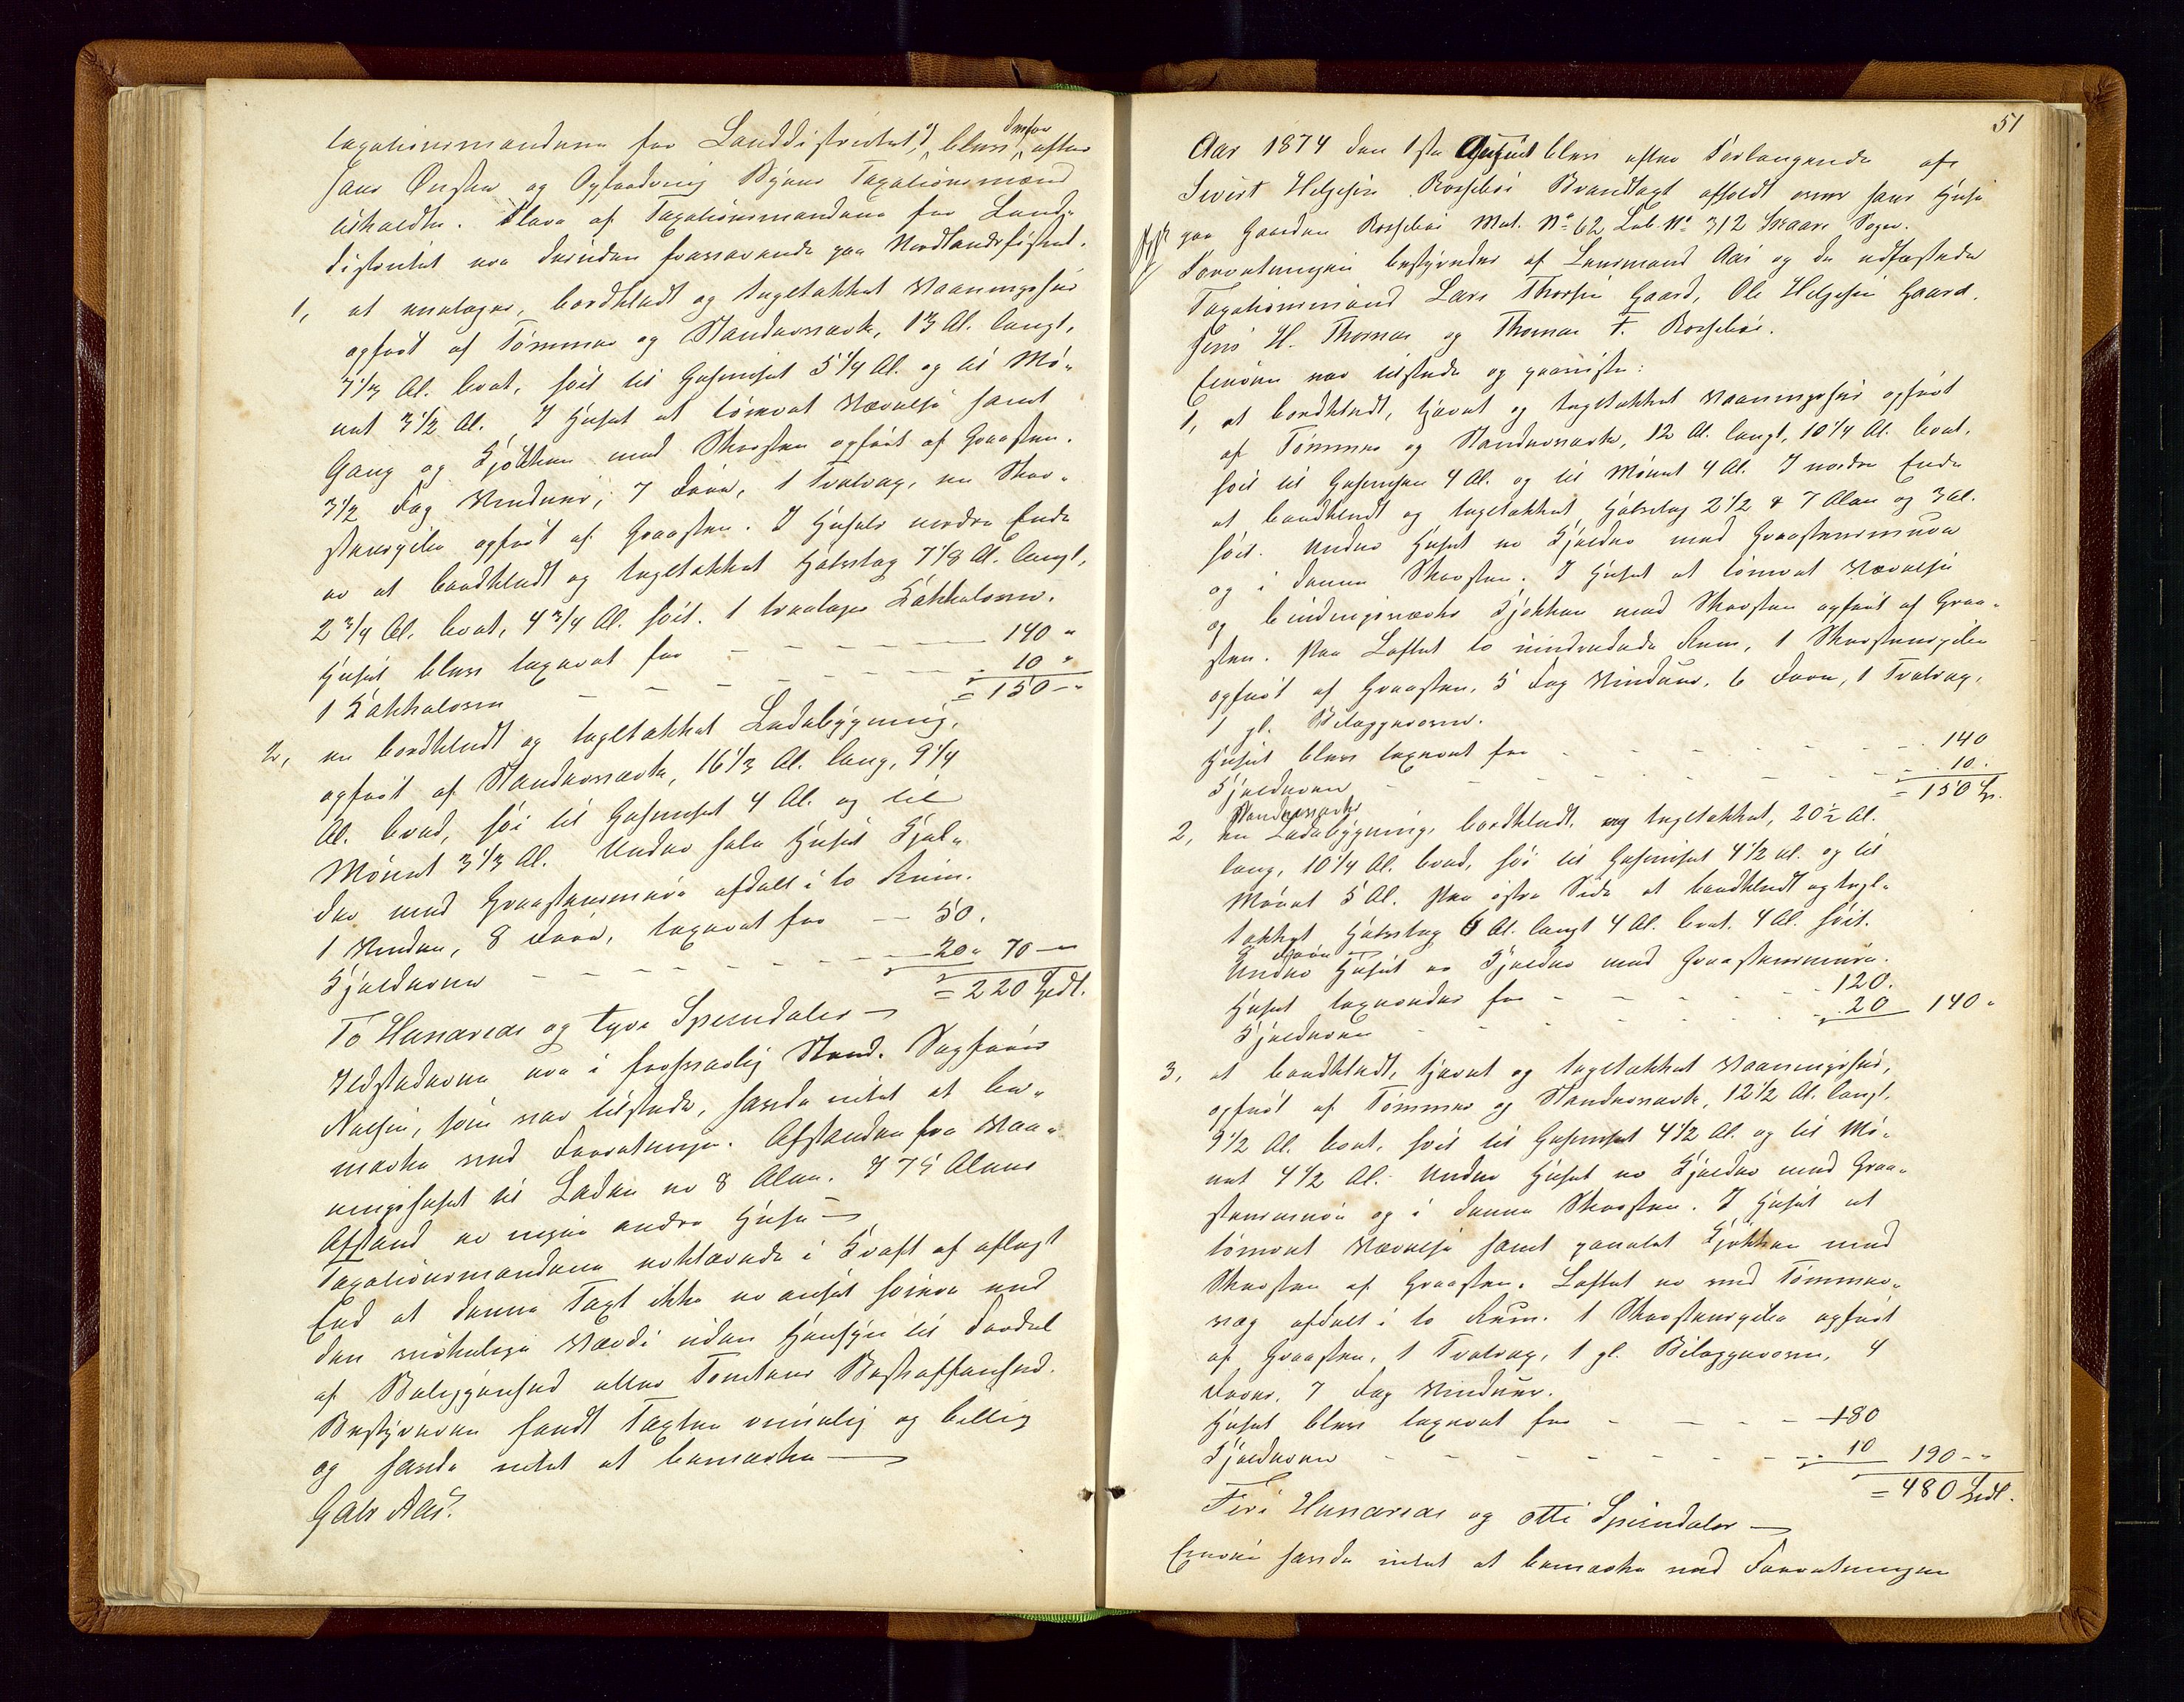 taxationsmændene for Landdistriktet, og blev derfor efter
hans Ønske og Opfordring Byens Taxationsmænd
tilkaldte. Flere af Taxationsmændene for Land-
distriktet var desuden fraværende paa Nordlandsfiskeri.
1, et enetages, bordklædt og tegltækket Vaaningshus
opført af Tømmer og Standerværk, 13 Al. langt,
7 1/3 Al. bredt, høit til Gesimset 5 1/4 Al. og til Mø-
net 3 1/2 Al. I Huset et tømret Værelse samt
Gang og Kjøkken med Skorsten opført af Graasten.
3 1/2 Fag Vinduer, 7 Døre, 1 Tralverk, en Skor-
stenspibe opført af Graasten. I Husets nordre Ende
er et bordklædt og tegltækket Halvtag 7 1/8 Al. langt,
2 3/4 Al. bredt, 4 3/4 Al. høit. 1 toetages Kakkelovn.
Huset blev taxeret for — — — 140 "
1 Kakkelovn — — — 10 "
= 150 — "
2, en bordklædt og tegltækket Ladebygning,
opført af Standerværk, 16 1/3 Al. lang, 9 1/4
Al. bred, høi til Gesimset 4 Al. og til
Mønet 3 1/3 Al. Under hele Huset Kjæl-
der med Graastensmure afdelt i to Rum.
1 Vindue, 8 Døre, taxeret for — 50.
Kjelderen — — — 20 " 70 — "
= 220 Spdl.
To Hundrede og tyve Speciedaler —
Ildstederne var i forsvarlig Stand. Sagfører
Nielsen, som var tilstede, havde intet at be-
mærke ved Forretningen. Afstanden fra Vaa-
ningshuset til Laden er 8 Alen. I 75 Alens
Afstand er ingen andre Huse —
Taxationsmændene erklærede i Kraft af aflagt
Eed at denne Taxt ikke er ansat høiere end
den virkelige Værdi uden Hensyn til Fordel
af Beliggenhed eller Tomtens Beskaffenhed.
Bestyreren fandt Taxten rimelig og billig
og havde intet at bemærke —
Gabr Aas.
51
Aar 1874 den 1ste August blev efter Forlangende af
Sivert Helgesen Rossebø Brandtaxt afholdt over hans Huse
paa Gaarden Rossebø Mat. No 62 Løb. No 312 Skaare Sogn.
Forretningen bestyredes af Lensmand Aas og de edfæstede
Taxationsmænd Lars Thorsen Gaard, Ole Helgesen Gaard,
Jens H. Thomas og Thomas T. Rossebø.
Eieren var tilstede og paaviste:
1, et bordklædt, tjæret og tegltækket Vaaningshus opført
af Tømmer og Standerværk, 12 Al. langt, 10 1/4 Al. bredt,
høit til Gesimsen 4 Al. og til Mønet 4 Al. I nordre Ende
et bordklædt og tegltækket Halvtag 2 1/2 & 7 Alen og 3 Al.
høit. Under Huset er Kjælder med Graastensmure
og i denne Skorsten. I Huset et tømret Værelse
og bindingsværks Kjøkken med Skorsten opført af Graa-
sten. Paa Loftet to indredede Rum, 1 Skorstenspibe
opført af Graasten, 5 Fag Vinduer, 6 Døre, 1 Tralverk,
1 gl. Bilæggerovn.
Huset blev taxeret for — — — 140
Kjælderen — — — 10.
= 150 Sp.
2, en Standerværks Ladebygning, bordklædt og tegltækket, 20 1/2 Al.
lang, 10 1/4 Al. bred, høi til Gesimset 4 1/2 Al. og til
Mønet 5 Al. Paa østre Side et bordklædt og tegl-
tækket Halvtag 6 Al. langt 4 Al. bredt. 4 Al. høit.
Døre
Under Huset er Kjælder med Graastensmure.
Huset taxeredes for — — — 120.
Kjælderen — — — 20 140 "
3, et bordklædt, tjæret og tegltækket Vaaningshus,
opført af Tømmer og Standerværk, 12 1/2 Al. langt,
9 1/2 Al. bredt, høit til Gesimset 4 1/2 Al. og til Mø-
net 4 1/2 Al. Under Huset er Kjælder med Graa-
stensmur og i denne Skorsten. I Huset et
tømret Værelse samt panelet Kjøkken med
Skorsten af Graasten. Loftet er ved Tømmer-
væg afdelt i to Rum. 1 Skorstenspibe opført
af Graasten, 1 Tralverk, 1 gl. Bilæggerovn, 4
Døre, 7 Fag Vinduer.
Huset blev taxeret for — — — 180
Kjælderen — — — 10 190 — "
= 480 Spdl.
Fire Hundrede og otti Speciedaler —
Eieren havde intet at bemærke ved Forretningen